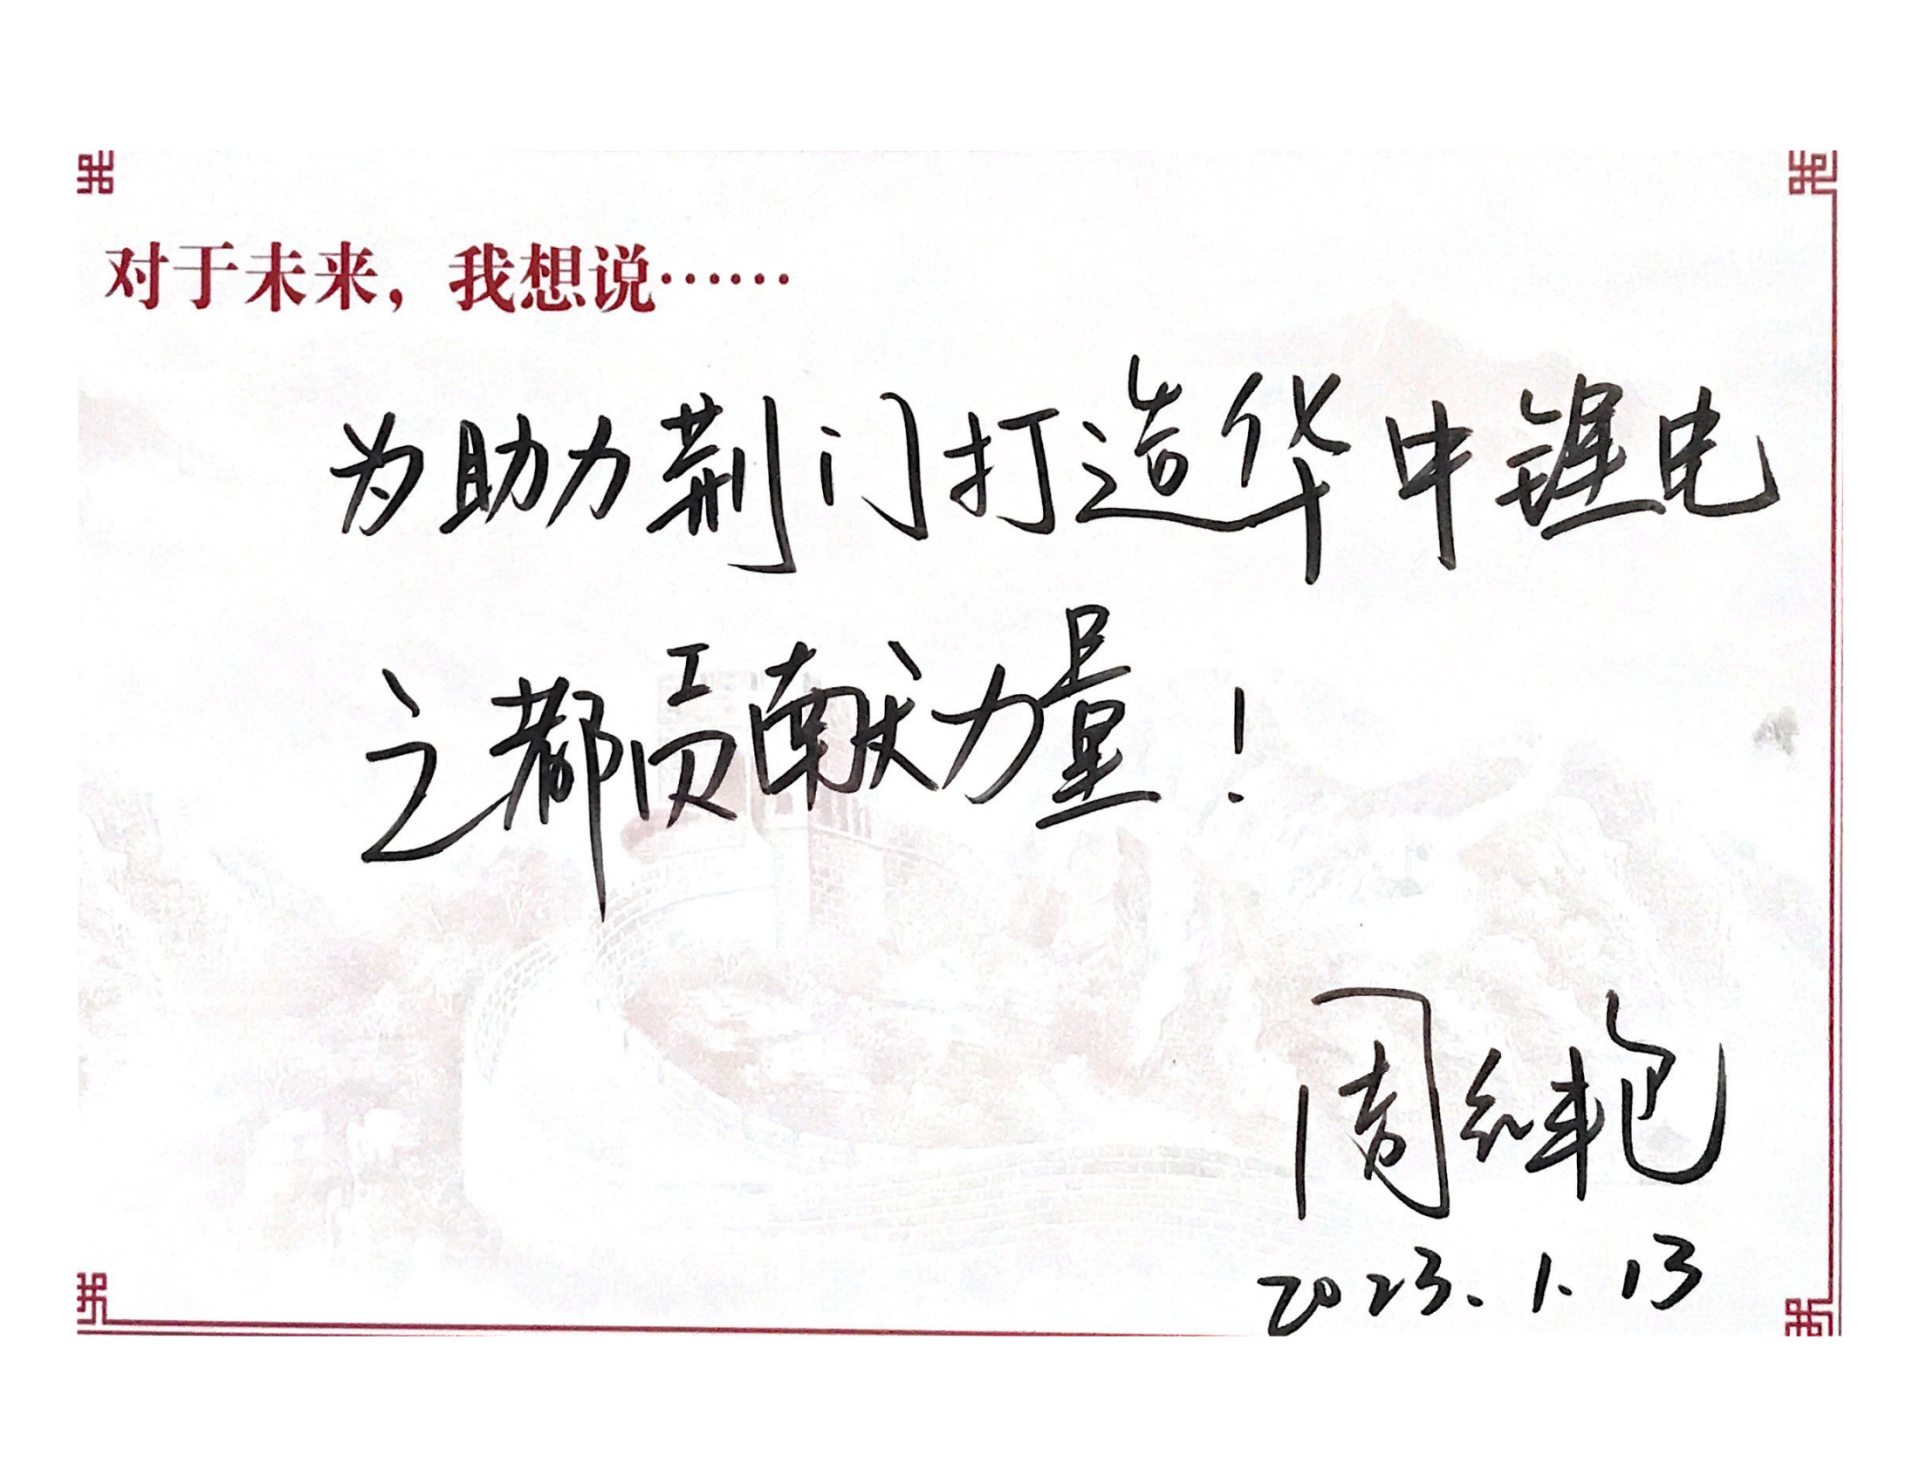 对于未来，我想说……
为助力荆门打造华中锂电
之都贡献力量！
周红艳
2023.1.13